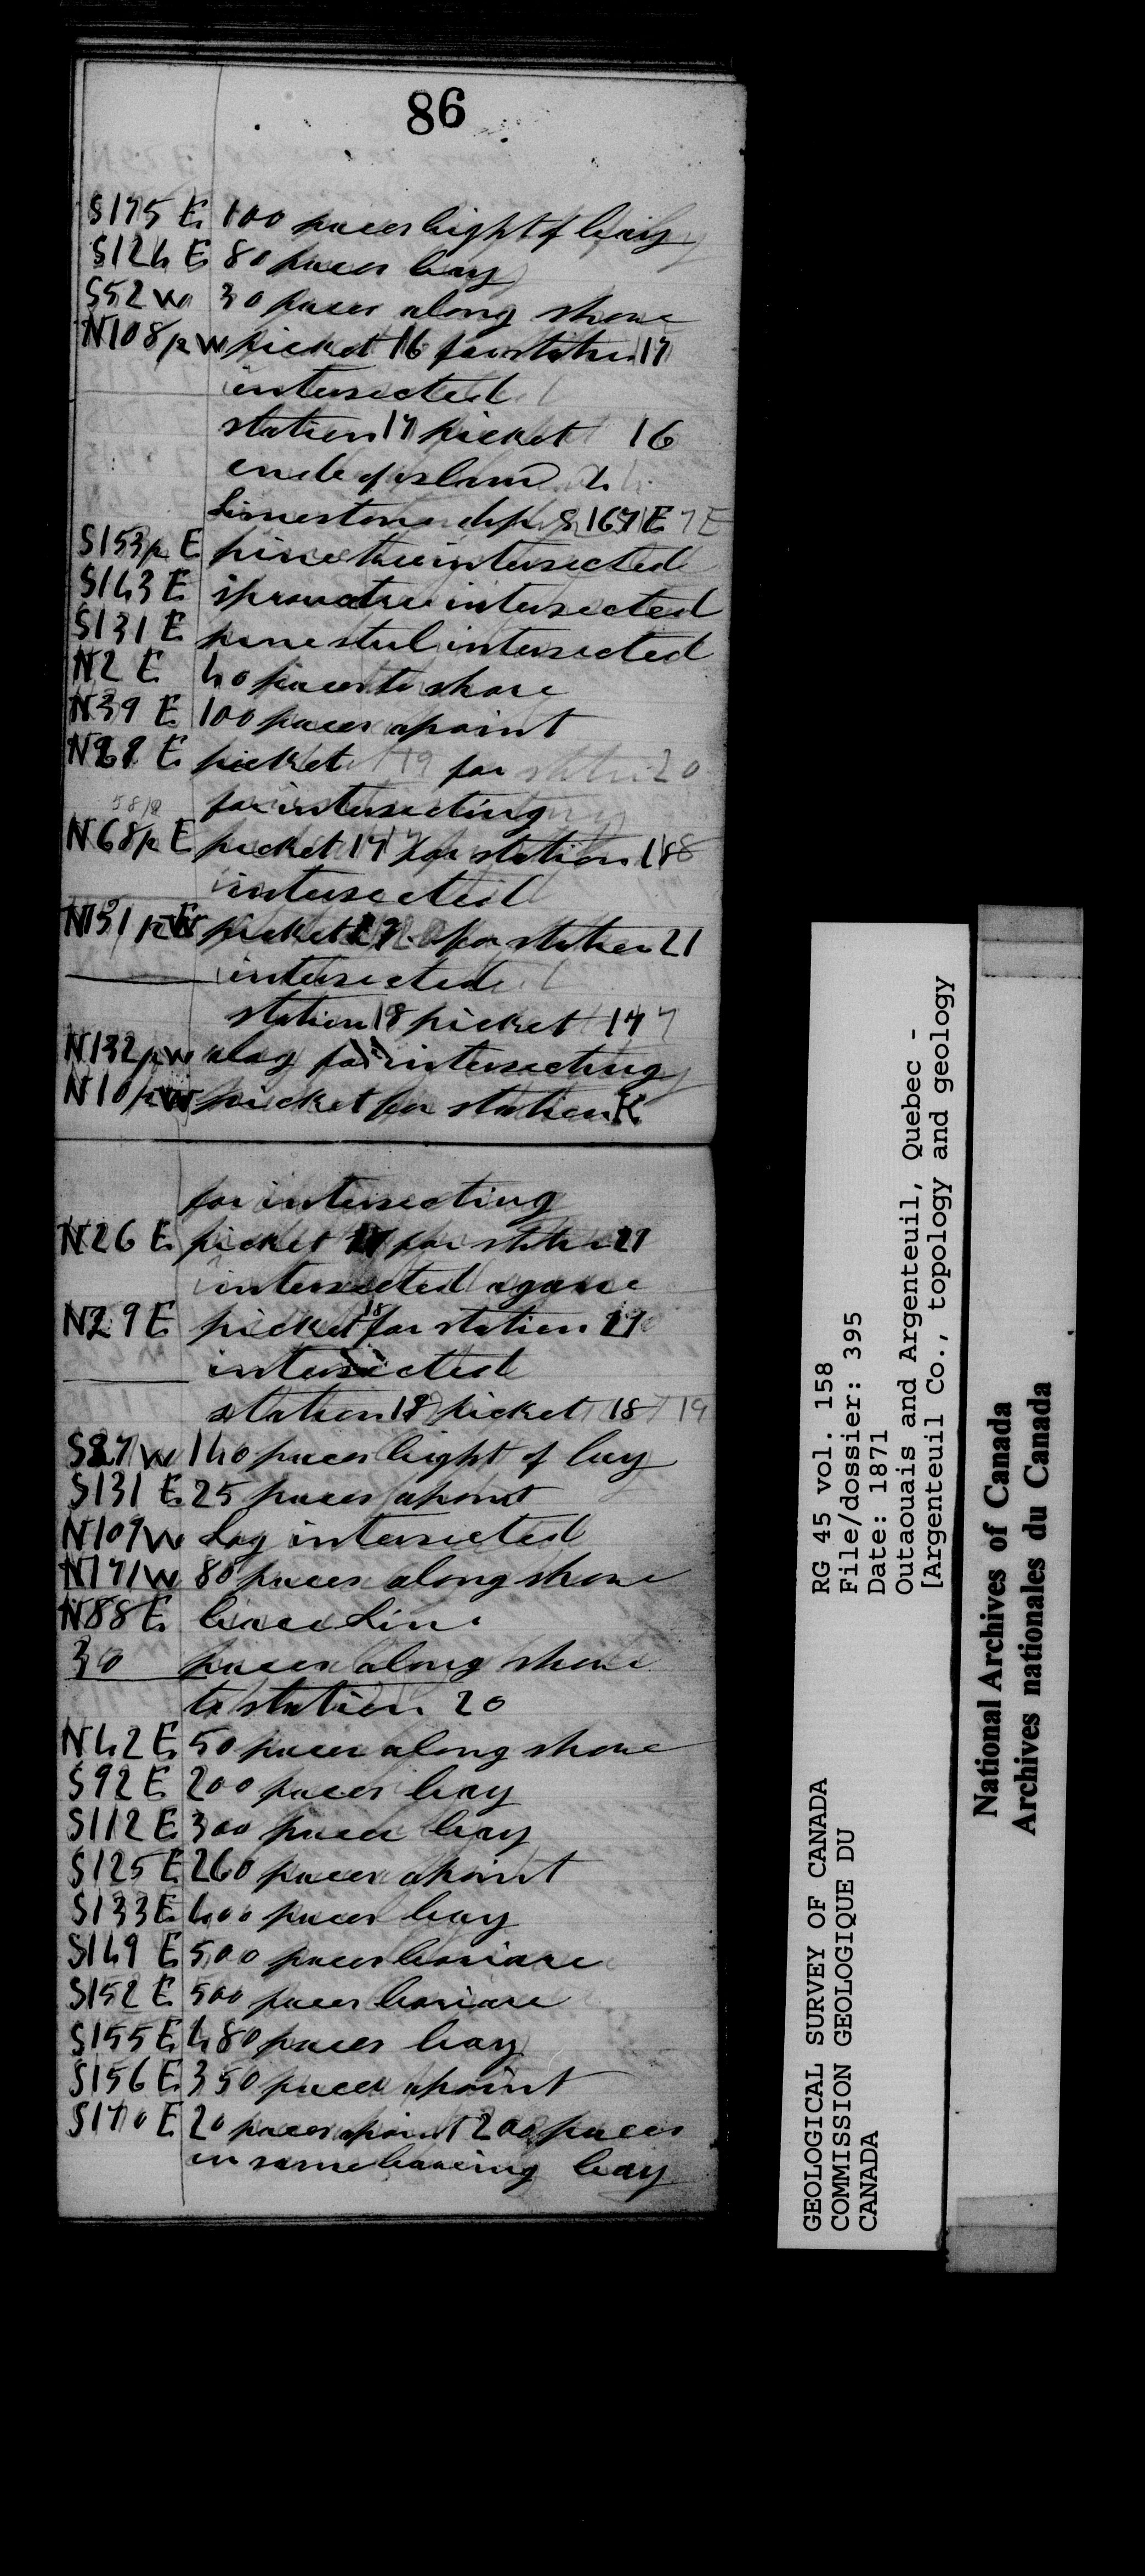 86
S175 E 100 paces hight of bay
S124 E 80 paces bay
S52 W 30 paces along shore
N108½ W picket 16 for station 17
intersected
station 17 picket 16
ende of island
Limestone dip S 167 E
S153½ E pine tree intersected
S143 E spruce tree intersected
S131 E pine intersected
N2 E 40 paces to shore
N39 E 100 paces apoint
N E picket 19 for station 20
for intersecting
N68½ E picket 17 for station 18
intersected
N131½ picket for station 21
intersected
station 18 picket 17
N132½ W for intersecting
N10½ W picket for station K
for intersecting
N26 E picket for station 21
intersected agane
N29 E picket 18 for station
intersected
station 19 picket 18
S27 W 140 paces hight of bay
S131 E 25 paces apoint
N109 W Log intersected
N171 W 80 paces along shore
N88 E bace Line
30 paces along shore
to station 20
N42 E 50 paces along shore
S92 E 200 paces bay
S112 E 300 paces bay
S125 E 260 paces apoint
S133 E 400 paces bay
S149 E 500 paces
S152 E 500 paces
S155 E 480 paces bay
S156 E 350 paces apoint
S170 E 20 paces apoint 200 paces
in same bearing bay
GEOLOGICAL SURVEY OF CANADA
COMMISSION GEOLOGIQUE DU
CANADA
RG 45 vol. 158
File/dossier: 395
Date: 1871
Outaouais and Argenteuil, Quebec -
[Argenteuil Co., topology and geology
National Archives of Canada
Archives nationales du Canada